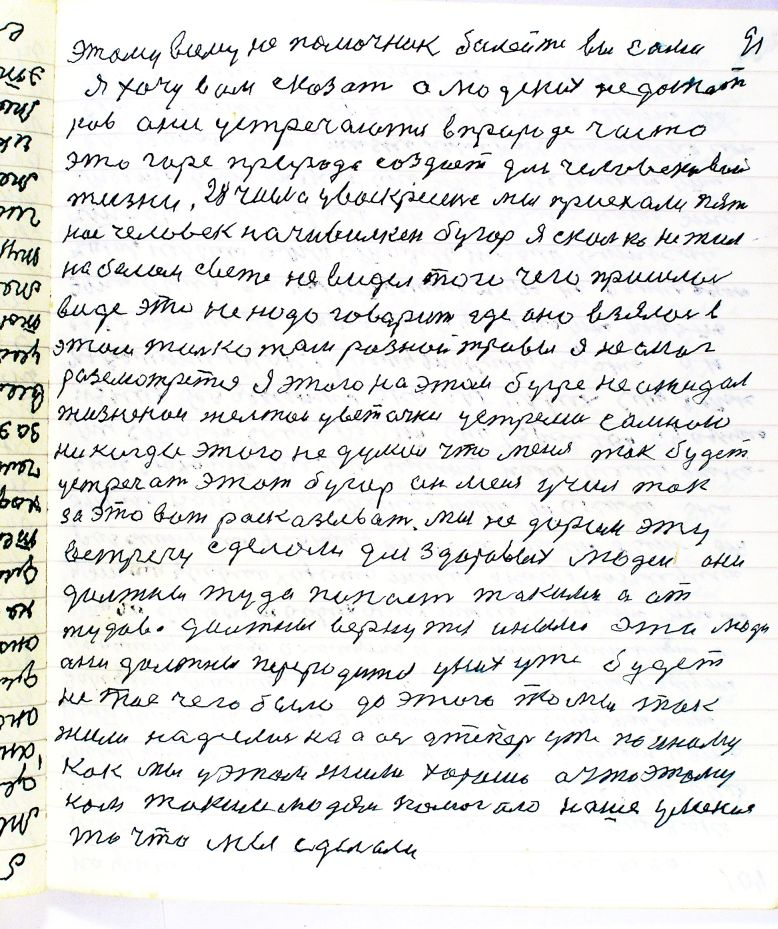 этому всему не помочник болейте вы сами 91
Я хочу вам сказат о людских недостат
ков они устречаются в природе часто
это горе природа создает для человеческой
жизни. 28 числа у воскресение мы приехали пят
нае человек на чивилкен бугор Я сколко не жил
на белом свете не видел того чего пришлос
виде это не надо говорит где оно взялос в
этом толко там разной травы я не смог
разсмотрется Я этого на этом бугре не ожидал
жизненои желтои цветочки устрема самною
никогда этого не думал что меня так будет
устречат этот бугор он меня учил так
за это вам расказыват. мы не даром эту
встречу сделали для здоровых людей они
должны туда попаст такими а от
тудова должны вернутся иными эти люди
они должны переродится у них уже будет
не тое чего было до этого то мы так
жили надеялис на а теперь уже по иному
как мы у этом жили хорошо а что этому
нам таким людям помогало наше умение
то что мы сделали